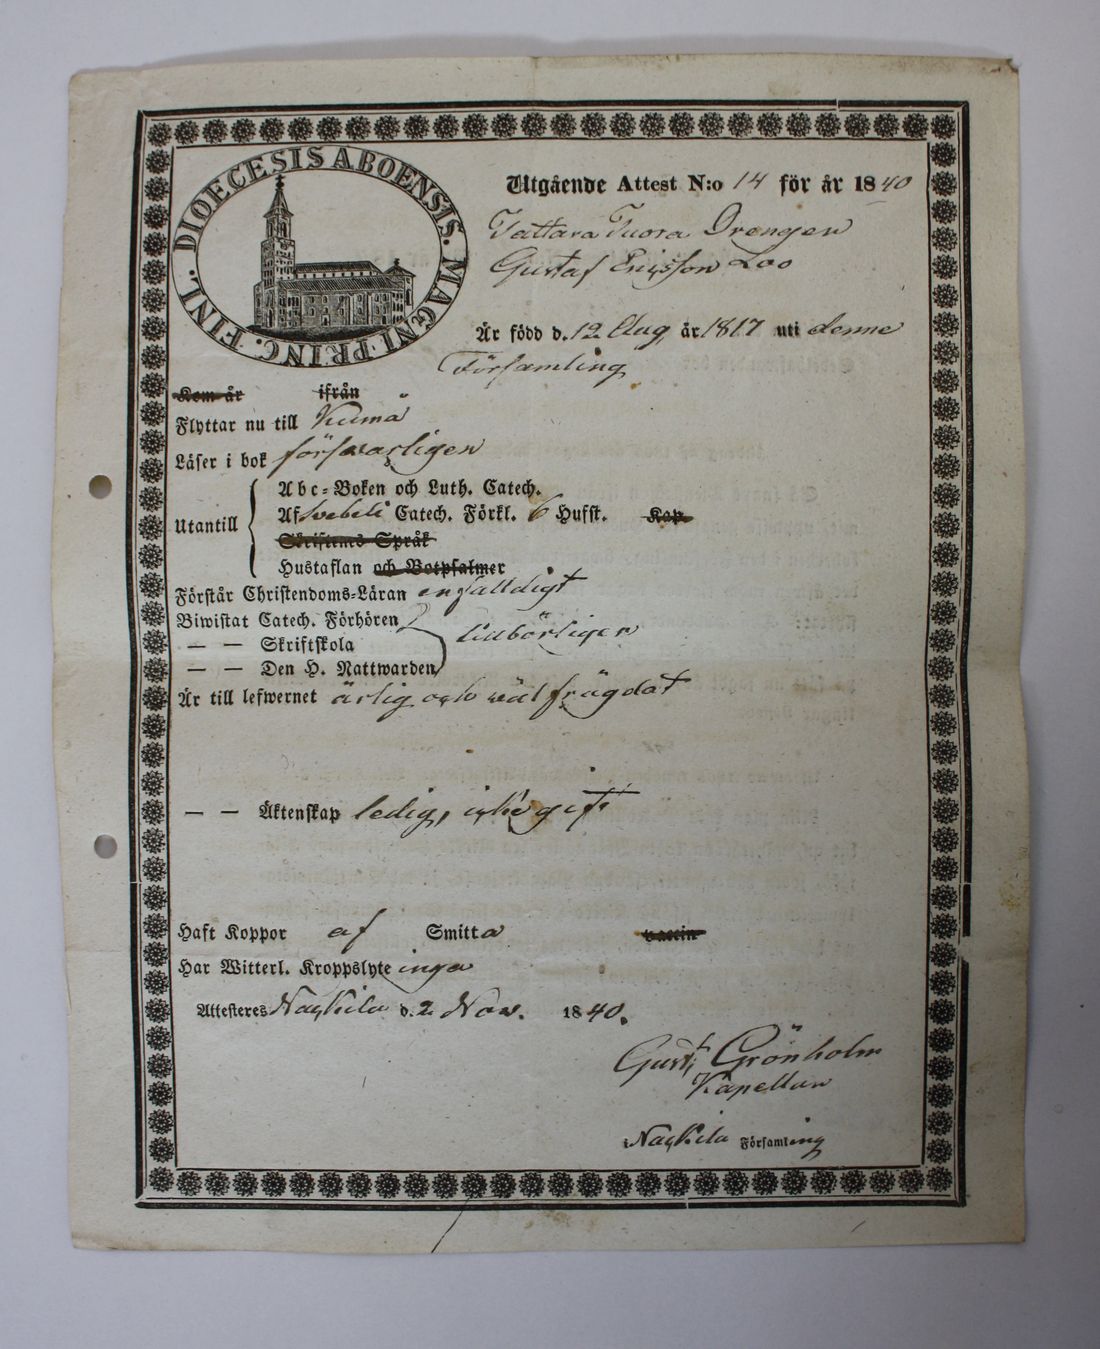 DIOECESIS ABOENSIS. MAGNI PRINC. FINL.
Utgående Attest N:o 14 för år 1840
Tattara Tuora Drengen
Gustaf Ericsson Loo
Är född d. 12 Aug. år 1817 uti denne
Församling
Kom år ifrån
Flyttar nu till Kumå
Läser i bok försvarligen
Utantill
Abc-Boken och Luth. Catech.
Af Svebeli Catech. Förkl. 6 Hufst. Kap.
Skriftens Språk
Hustaflan och Botpsalmer
Förstår Christendoms-Läran enfalldigt
Biwistat Catech. Förhören
— — Skriftskola tillbörligen
— — Den H. Nattwarden
Är till lefwernet ärlig och väl frägdat
— — Äktenskap ledig, icke gift
Haft Koppor af Smitta vaccin
Har Witterl. Kroppslyte inga
Attesteres Nackila d. 2 Nov. 1840.
Gust. Grönholm
Kapellan
i Nackila Församling